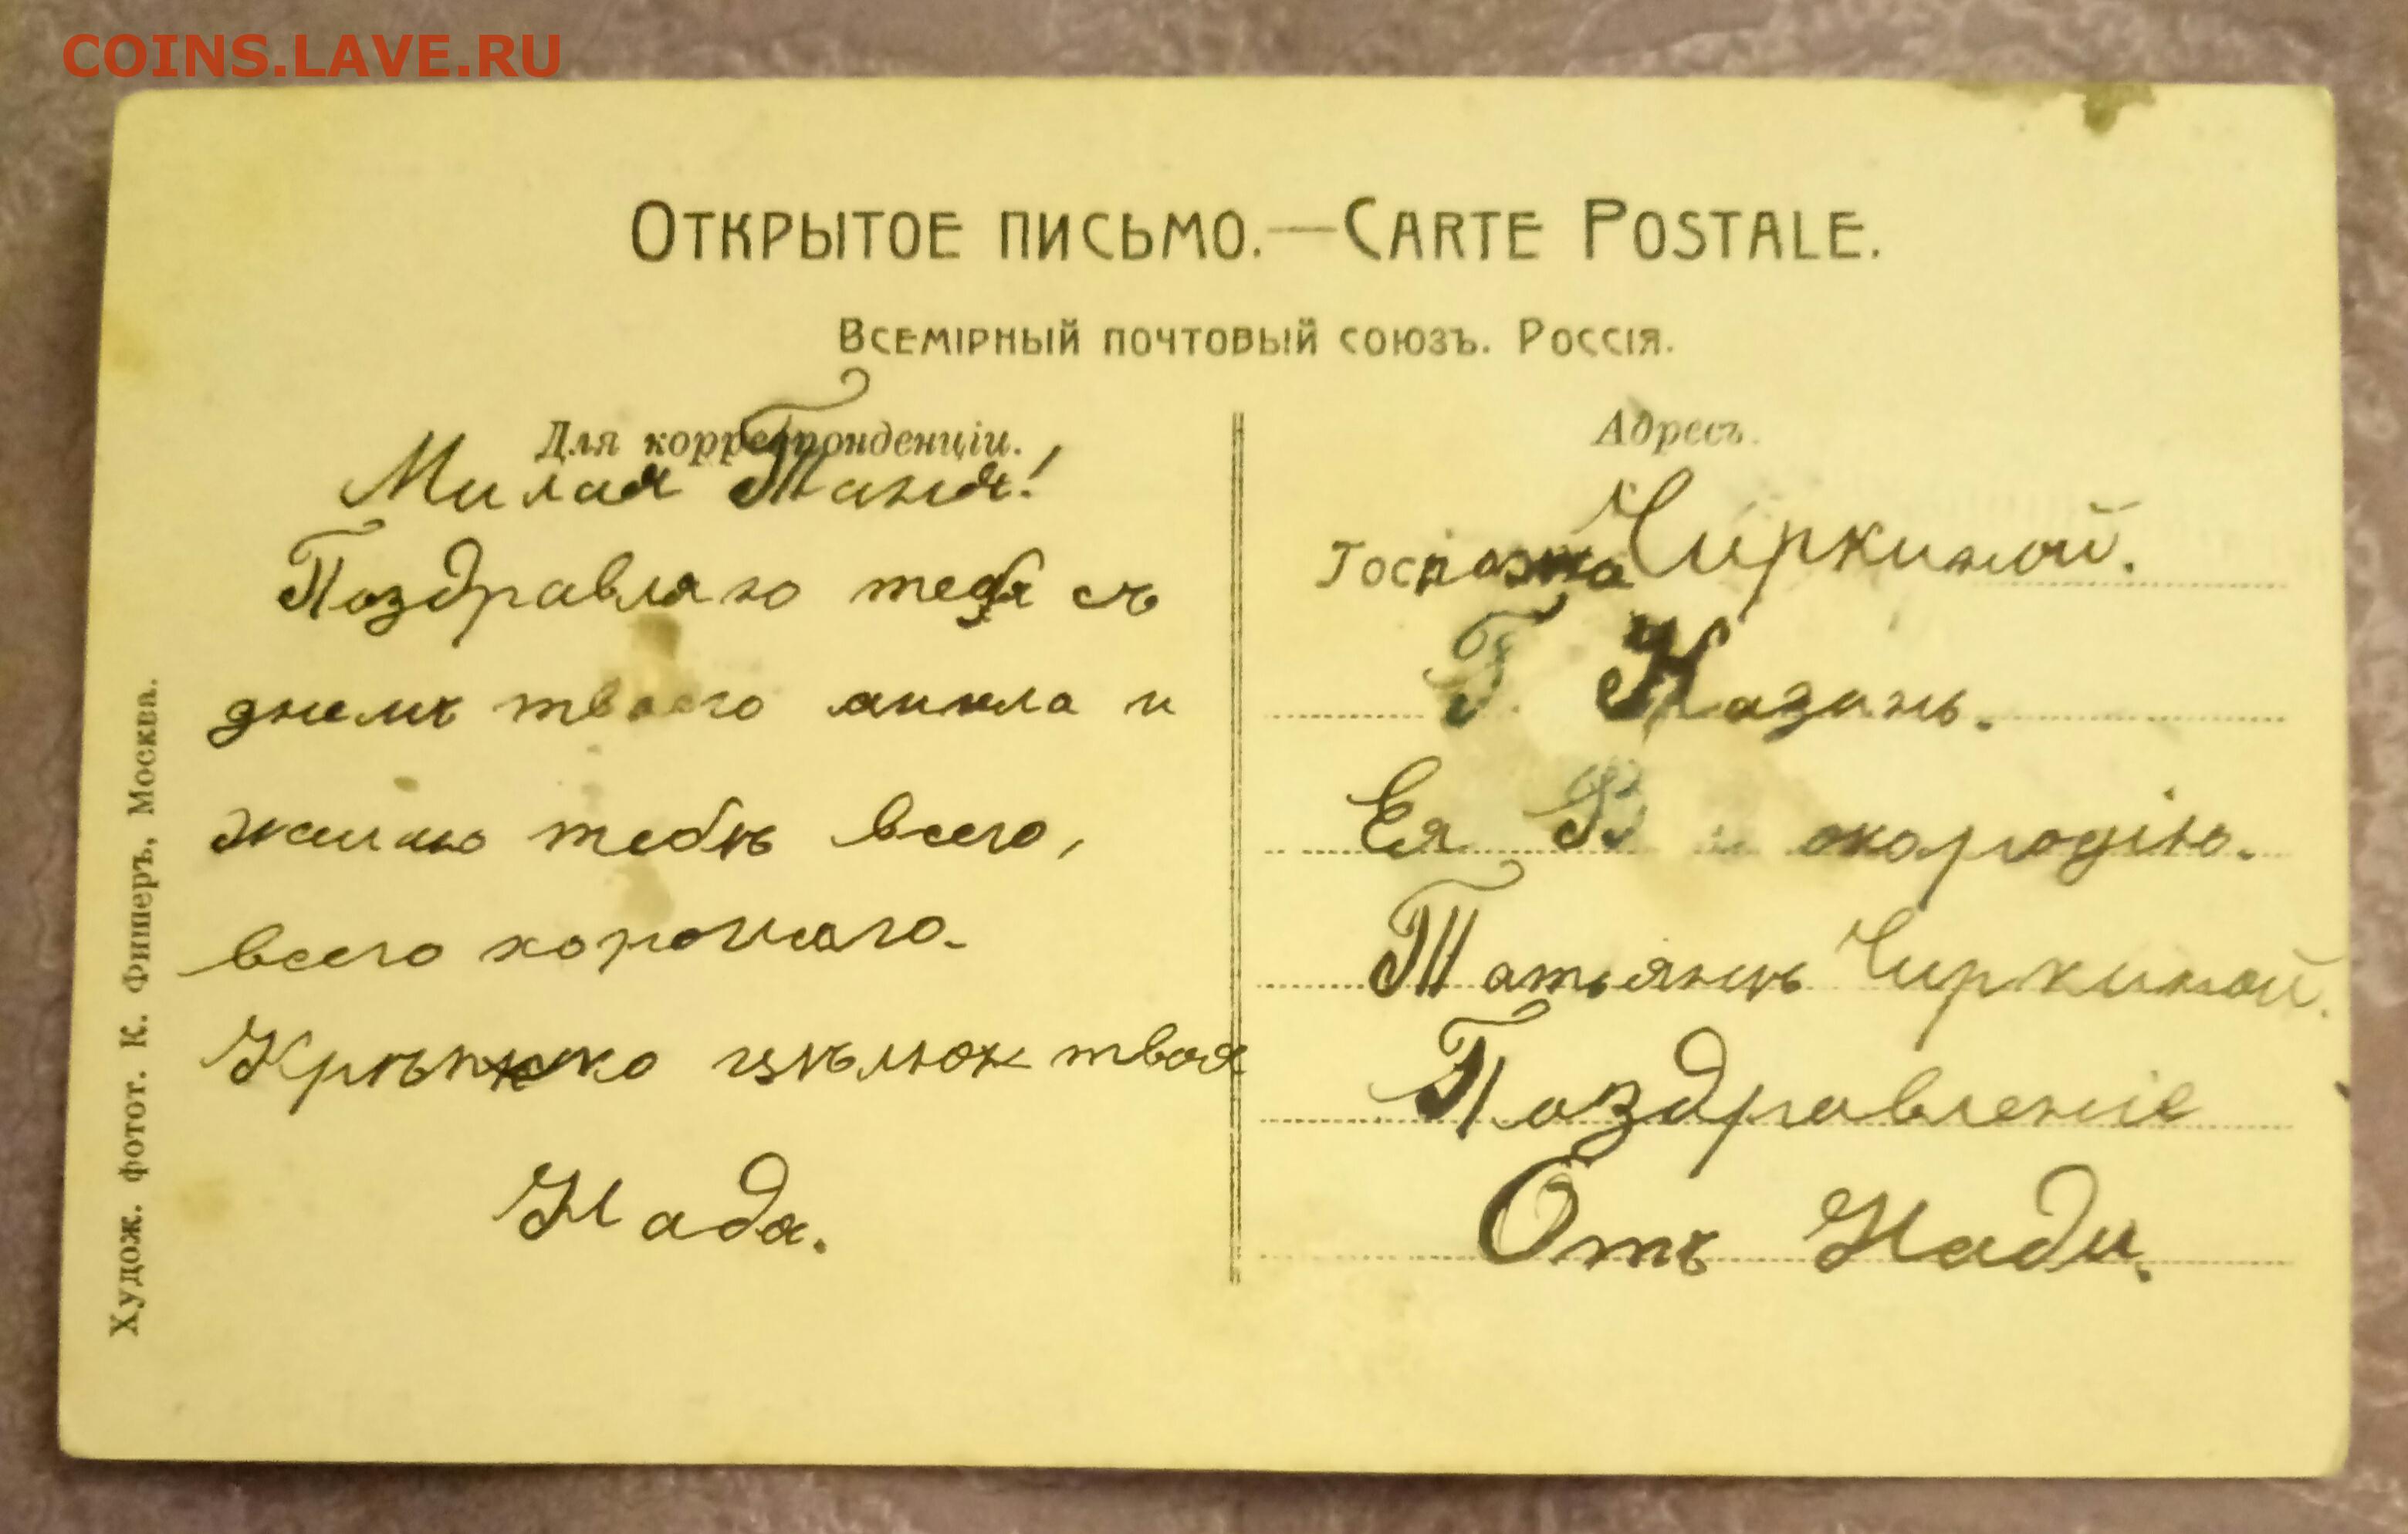 COINS.LAVE.RU
Открытое письмо.—Carte Postale.
Всемірный почтовый союзъ. Россія.
Для корреспонденціи.
Милая Таня!
Поздравляю тебя съ
днемъ твоего ангела и
желаю тебѣ всего,
всего хорошаго.
Крѣпко цѣлую твоя
Надя.
Худож. фотот. К. Фишеръ, Москва.
Адресъ.
Госпожа Чиркиной.
Г. Казань.
Ея
Татьянѣ Чиркиной.
Поздравленіе
Отъ Нади.